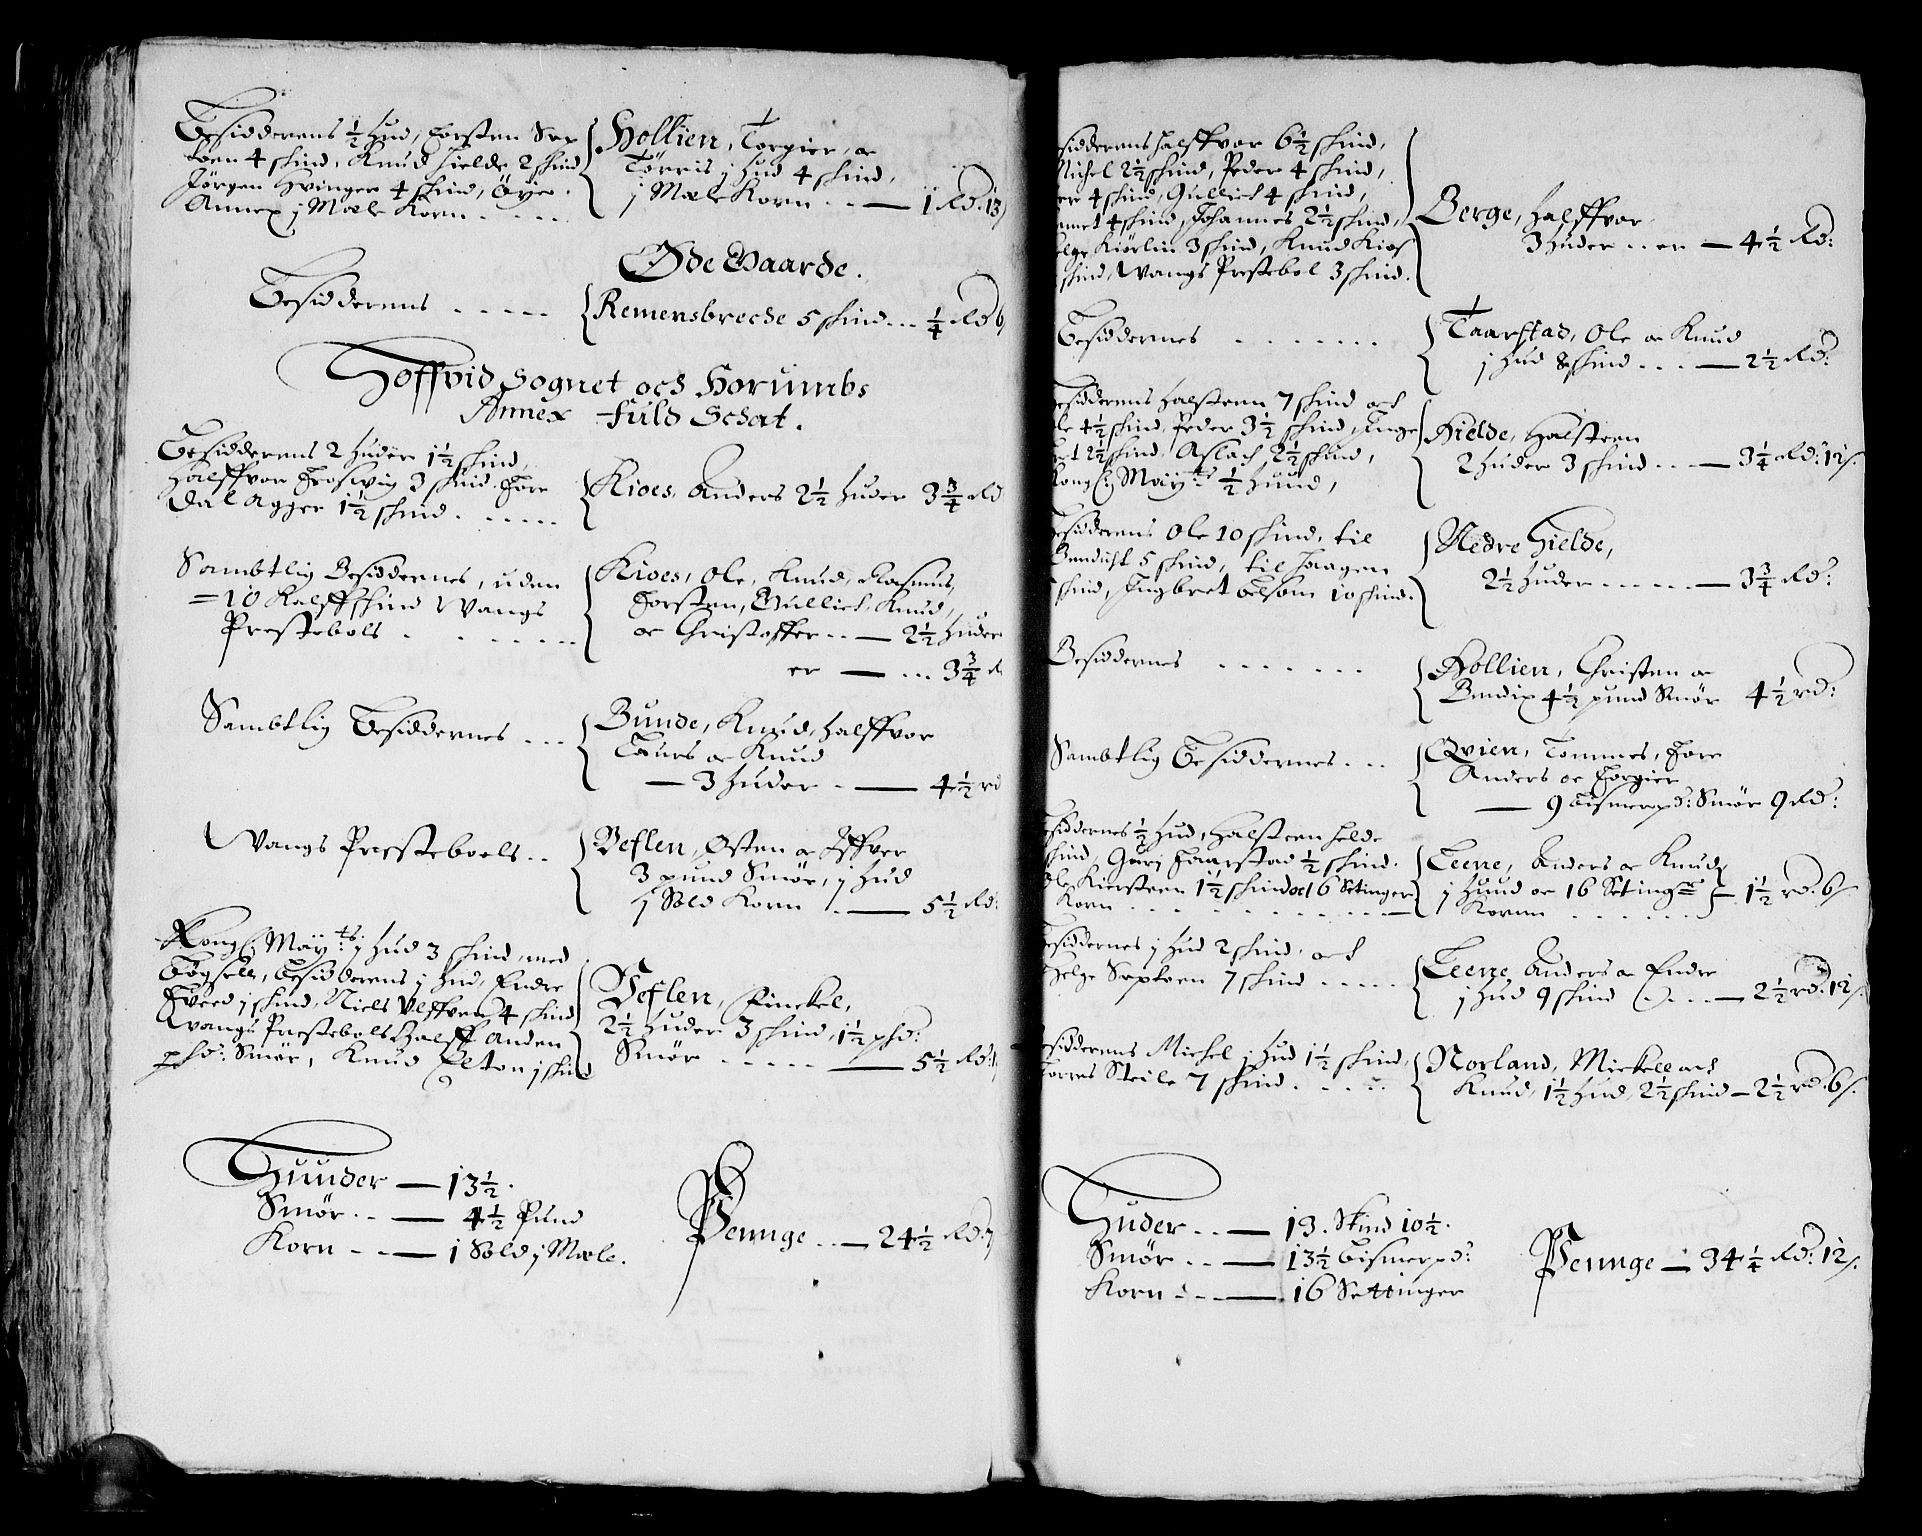 Besidderens ½ Hud, Torsten Sep
toen 4 skind, Knud Hielde 2 skind
Jørgen Svinger 4 skind, Öyer
Annex j Mæle Korn . . . .
Hollien, Torgier, oc
Törris j Hud 4 skind,
j Mæle Korn . . — 1 Rd: 13
Øde Gaarde.
Besidderens . . . . .
Remensbrecke 5 skind . . . ¼ Rd 6
Hoffvid Sognet och Horumbs
Annex fuld Schat.
Besidderens 2 Huder 1½ skind,
Halffvor Frosvig 3 skind. Tore
Dal Agger 1½ skind . . . . .
Kioes, Anders 2½ Huder 3¾ Rd
Sambtlig Besiddernes, uden
= 10 Kalffskind Wangs
Prestebols . . . . . .
Kioes, Ole, Knud, Rasmus,
Torsten, Gullich, Knud,
oc Christoffer . . — 2½ Huder
er — . . . 3¾ R
Sambtlig Besiddernes . . .
Bunde, Knud, Halffvor
Laurs oc Knud
— 3 Huder . — 4½ rd
Wangs Presteboels . .
Veflen, Østen oc Iffver
3 pund Smør, j Hud
j Sold Korn . — 5½ Rd:
Kongl: Mayts: j Hud 3 skind, med
Bøgsell, Besidderens j Hud, Endre
Tveed j skind, Niels Ulffven 4 skind
Wangs Prestebols Halff anden
phd: Smør, Knud Elton j skind
Veflen, Rinckel,
2½ Huder 3 skind, 1½ phd:
Smør . . . . . — 5½ Rd:
Huuder — 13½.
Smör . . — 4½ Pund
Korn . . — 1 Sold j Mæle.
Pennge . . — 24½ Rd: 7
sidderens Halffvor 6½ skind,
Michel 2½ skind, Peder 4 skind,
er 4 skind, Gullich 4 skind,
amet 4 skind, Johannes 2½ skind,
elge Kiørlin 3 skind, Knud Kios
skind, Wangs Prestebol 3 skind.
Berge, Halffvor
3 Huder . . er — 4½ Rd:
Besiddernes . . . . . . .
Taarstad, Ole oc Knud
j Hud 8 skind . . . — 2½ Rd:
esidderens Halsteen 7 skind och
le 4½ skind, Peder 3½ skind, Inge
et 2½ skind, Aslach 2½ skind,
Kongl: Mayts: ½ Huud,
Hielde, Halsteen
2 Huder 3 skind . . . — 3¼ Rd: 12 s.
esidderens Ole 10 skind, til
Bendicht 5 skind, til Haagen
skind, Ingbret Belsom 10 skind.
Nedre Hielde,
2½ Huder . . . . . — 3¾ Rd:
Besiddernes . . . . . . .
Hollien, Christen oc
Bendix 4½ pund Smør 4½ rd:
Sambtlig Besiddernes . . .
Qvien, Tommes, Tore
Anders oc Torgier
— 9 bismerpd: Smör 9 Rd:
esiddernes ½ Hud, Halsteen Helde
skind, Guri Taarstad ½ skind.
Ole Kiersteen 1½ skind oc 16 Setinger
Korn . . . . . . . . . .
Leene, Anders oc Knud
j Huud oc 16 Seting
Kornn . . . . . . — 1½ rd. 6 s.
esiddernes j Hud 2 skind, och
Helge Septoen 7 skind . . . . .
Leene, Anders oc Endre
j Hud 9 skind . . . . — 2½ rd: 12 s.
esidderens Michel j Hud 1½ skind,
Torres Steile 7 skind . . . . .
Norland, Mickell och
Knud, 1½ Hud, 2½ skind — 2½ rd. 6 s.
Huder . . — 13. Skind 10½.
Smör . . — 13½ bismerpd:
Korn . . . — 16 Settinger
Pennge — 34¼ Rd: 12 s.